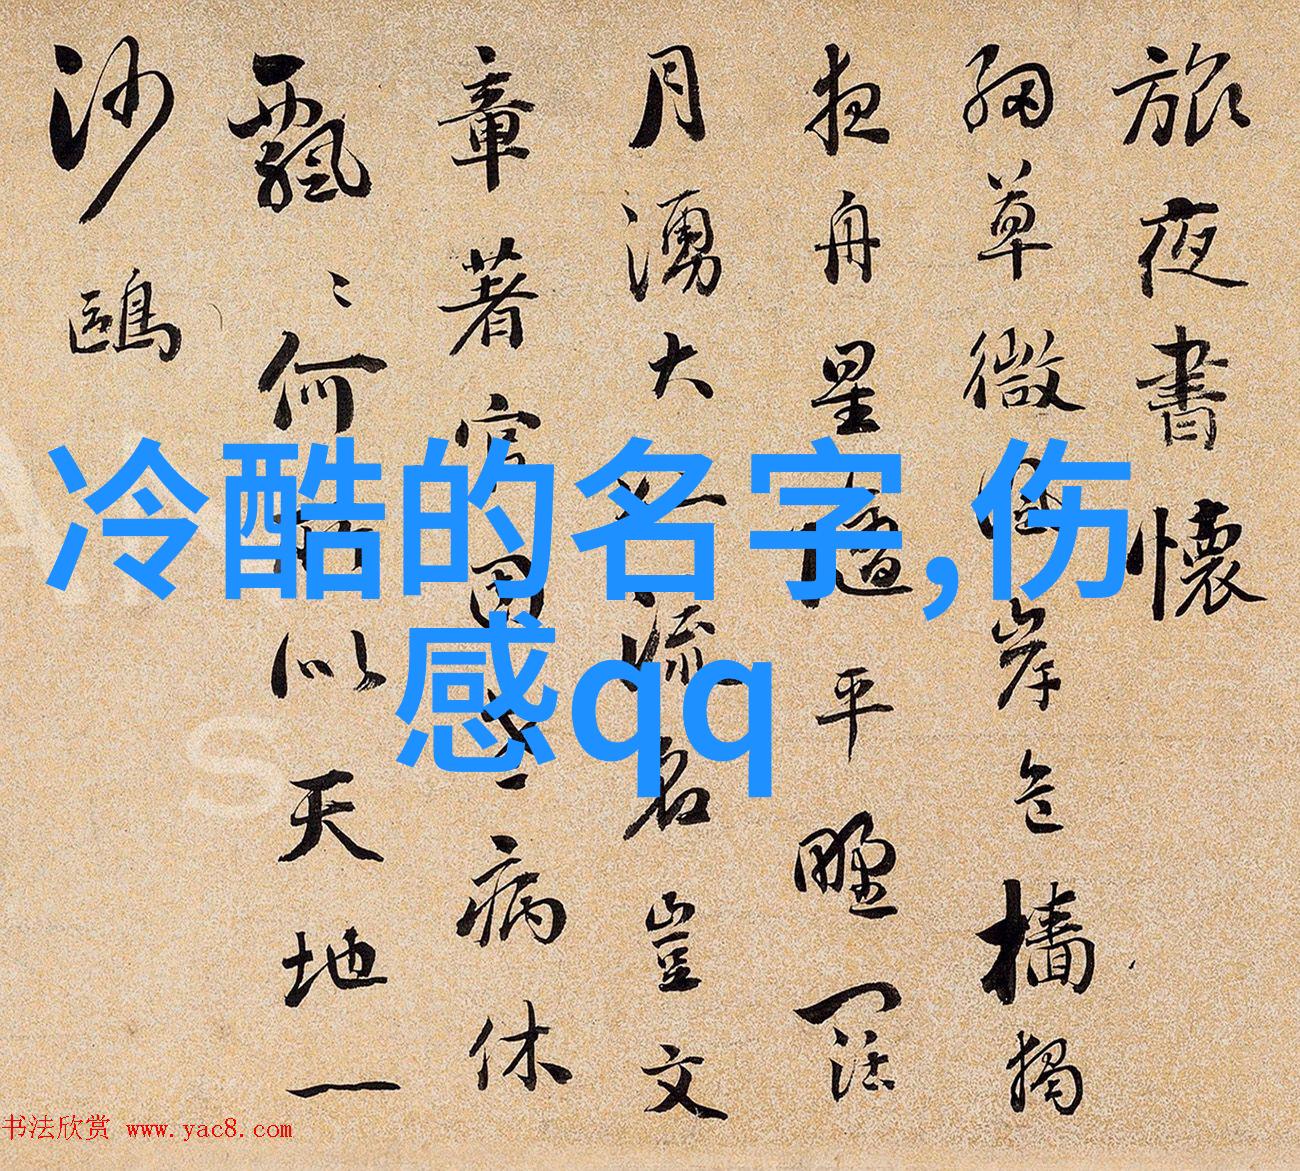 旅夜書懷
細草微風岸危檣獨
夜舟星隨平野闊
月湧大江流名豈文
章著官因老病休
飄〻何所似天地一
沙鷗
冷酷的名字,伤
感qq
书法欣赏 www.yac8.com